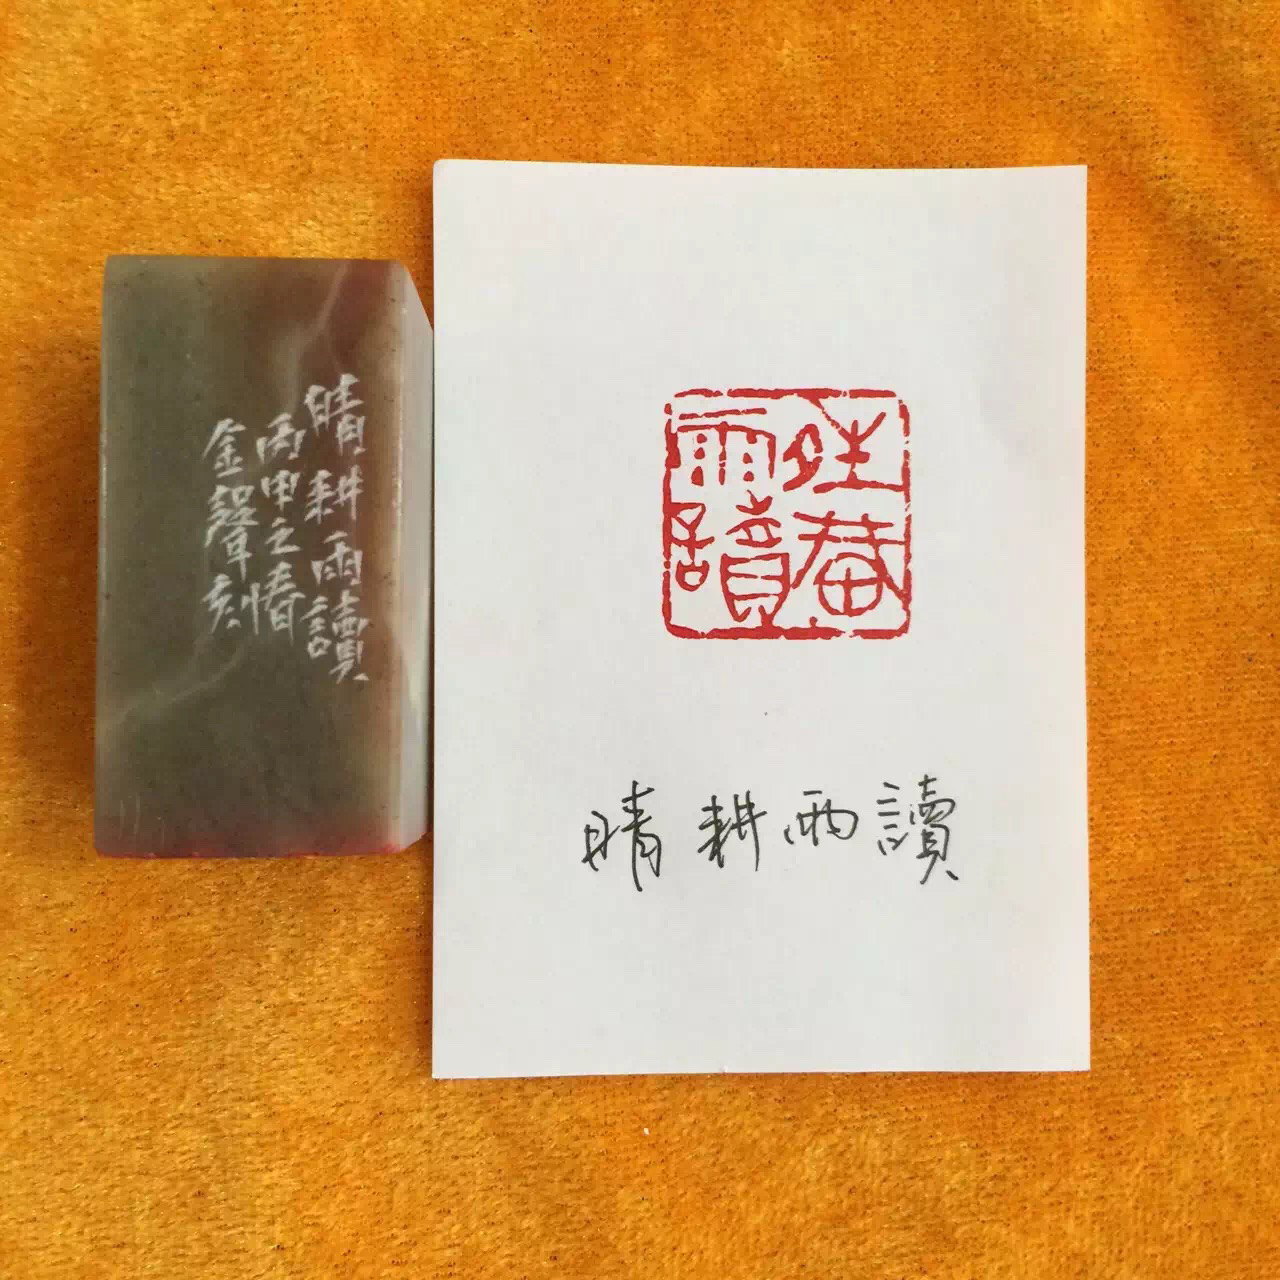 晴耕雨讀
丙申之
金聲刻
晴耕
雨讀
晴耕雨讀